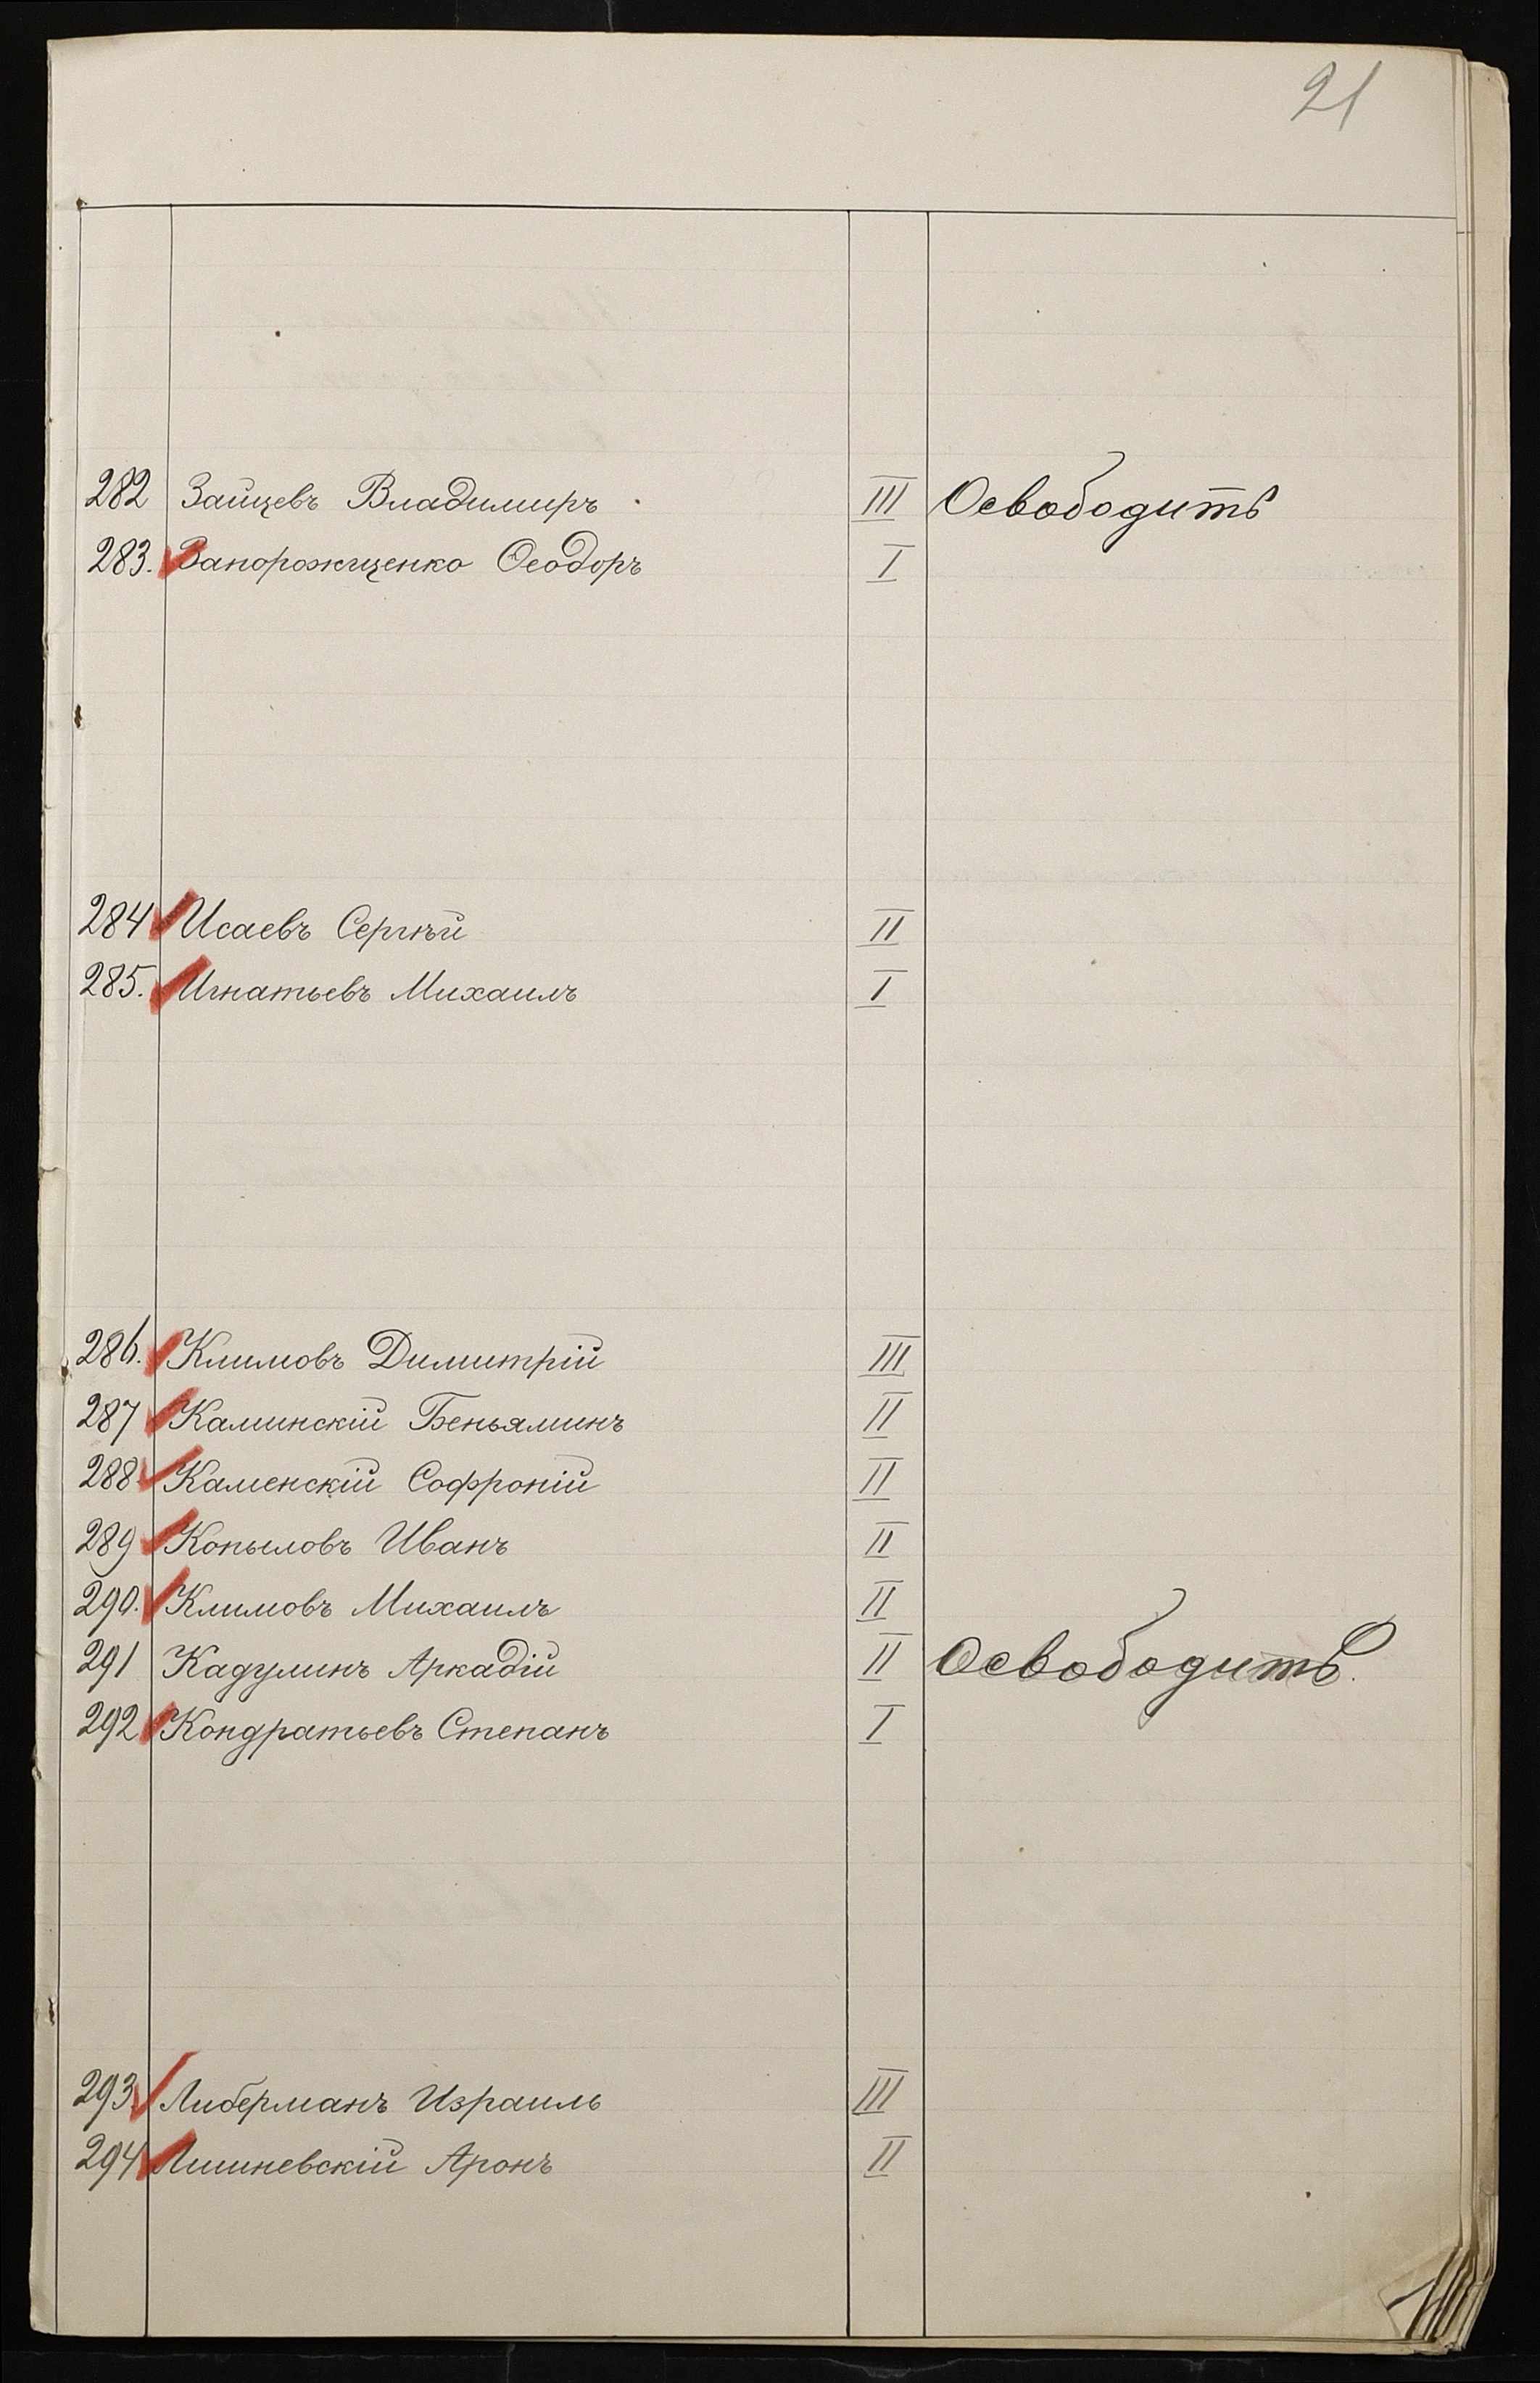 21
282 Зайцевъ Владимиръ III Освободить
283. Запорожищенко Ѳеодоръ I
284 Исаевъ Сергѣй II
285. Игнатьевъ Михаилъ I
286. Климовъ Димитрій III
287 Каминскій Беньяминъ II
288 Каменскій Софроній II
289 Копыловъ Иванъ II
290. Климовъ Михаилъ II
291 Кадулинъ Аркадій II Освободить.
292 Кондратьевъ Степанъ I
293. Либерманъ Израиль III
294 Лишневскій Аронъ II